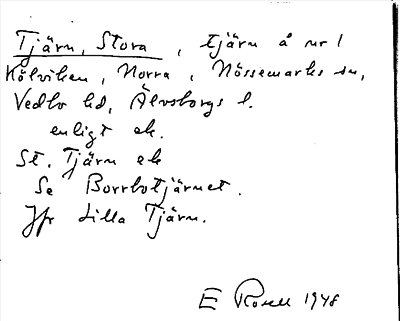 Tjärn, Stora, tjärn å nr 1
Kölviken, Norra, Nössemarks sn,
Vedbo hd, Älvsborgs l.
enligt ek.
St. Tjärn ek
Se Borrbotjärnet.
Jfr Lilla Tjärn.
E Rosell 1948